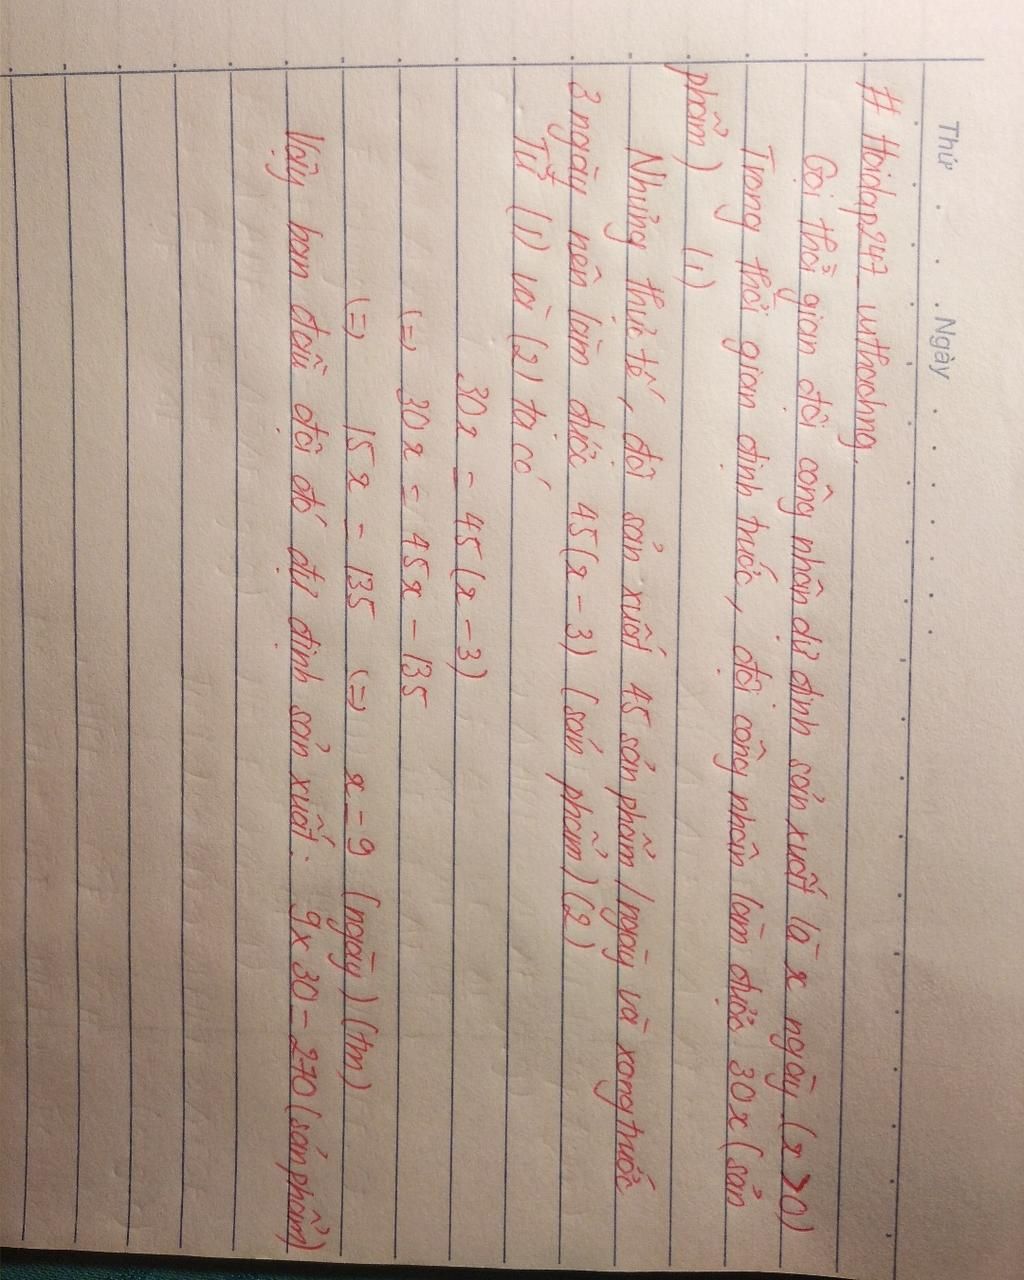 Thứ Ngày
# Hoidap247_wthoahng.
Gọi thời gian đội công nhân dự định sản xuất là x ngày (x > 0)
Trong thời gian định trước, đội công nhân làm được 30x (sản
phẩm) (1)
Nhưng thực tế, đội sản xuất 45 sản phẩm / ngày và xong trước
3 ngày nên làm được 45(x - 3) (sản phẩm) (2)
Từ (1) và (2) ta có
30x = 45(x - 3)
(=) 30x = 45x - 135
(=) 15x = 135 (=) x = 9 (ngày) (tm)
Vậy ban đầu đội đó dự định sản xuất: 9 x 30 = 270 (sản phẩm)